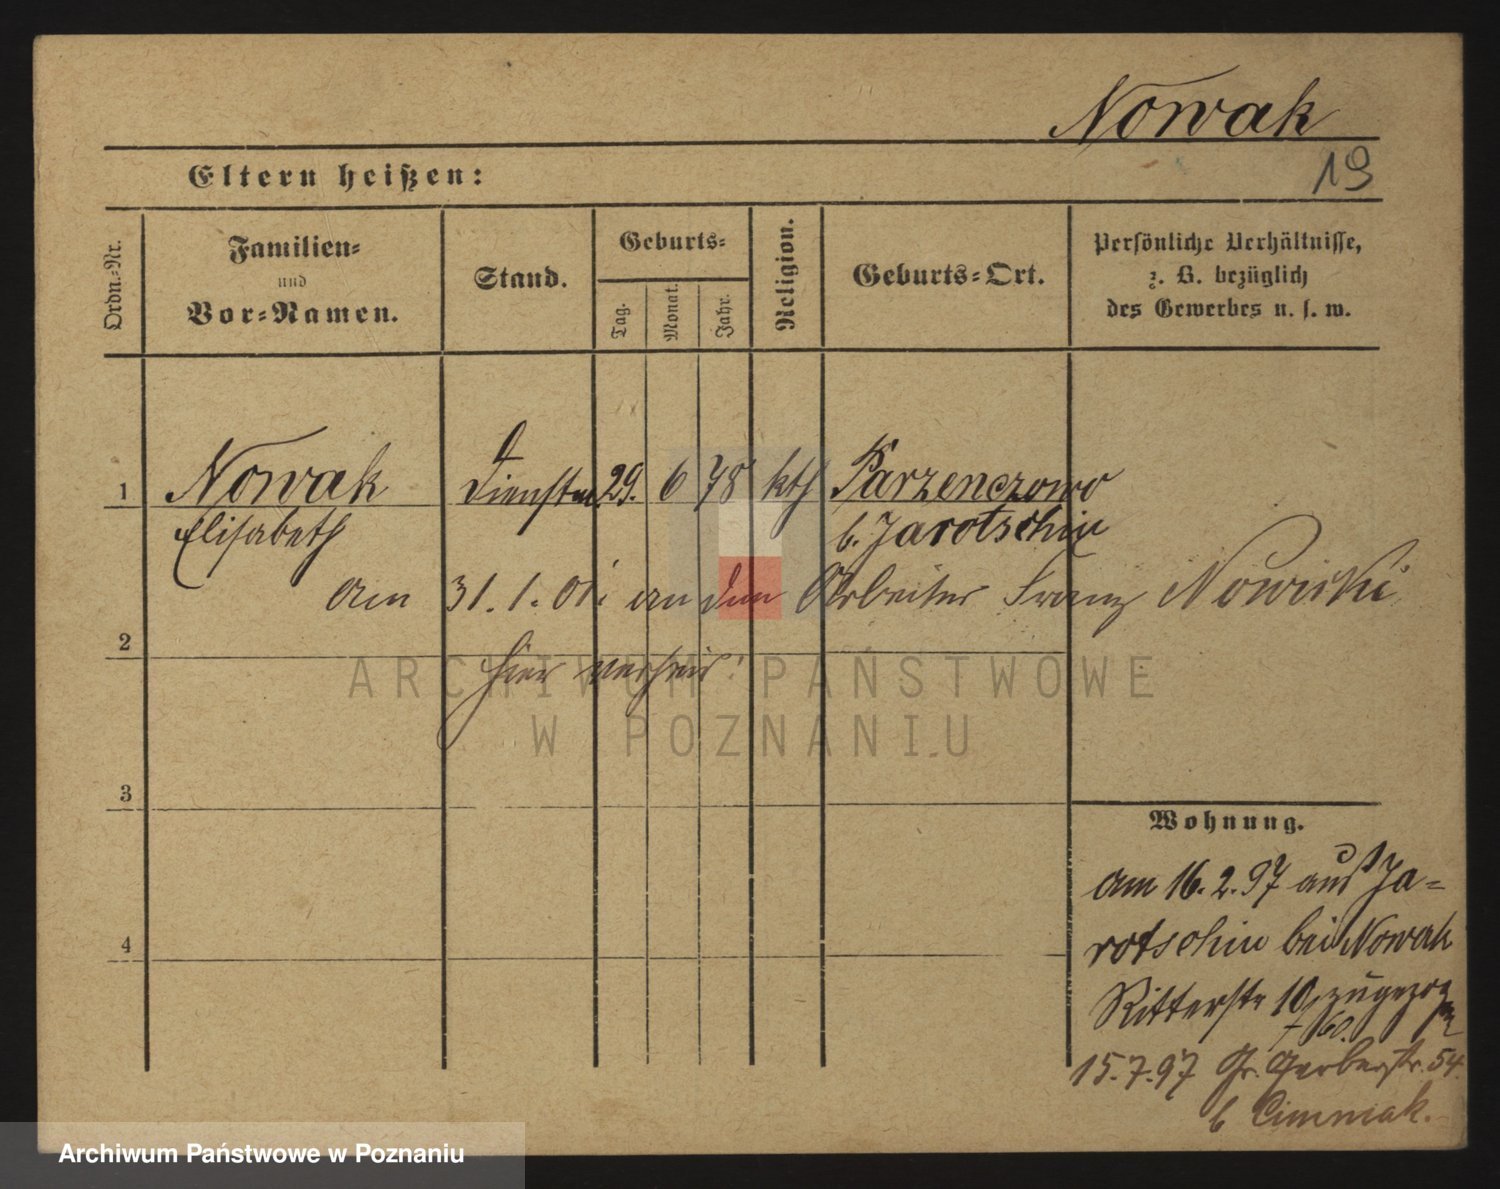 Nowak
19
Eltern heißen:
Ordn.=Nr.
Familien=
und
Vor=Namen.
Stand.
Geburts=
Tag.
Monat.
Jahr.
Religion.
Geburts=Ort.
Persönliche Verhältnisse,
z. B. bezüglich
des Gewerbes u. s. w.
1 Nowak 29. 6 78 kth Parzenczewo
Elisabeth b. Jarotschin
am 31.1.01. an den Arbeiter Franz Nowicki
2
hier verheir.
3
4
Wohnung.
am 16.2.97 aus Ja=
rotschin bei Nowak
Ritterstr 10 zugezogen
15.7.97 Gr. Gerberstr. 54.
b
ARCHIWUM PAŃSTWOWE
W POZNANIU
Archiwum Państwowe w Poznaniu